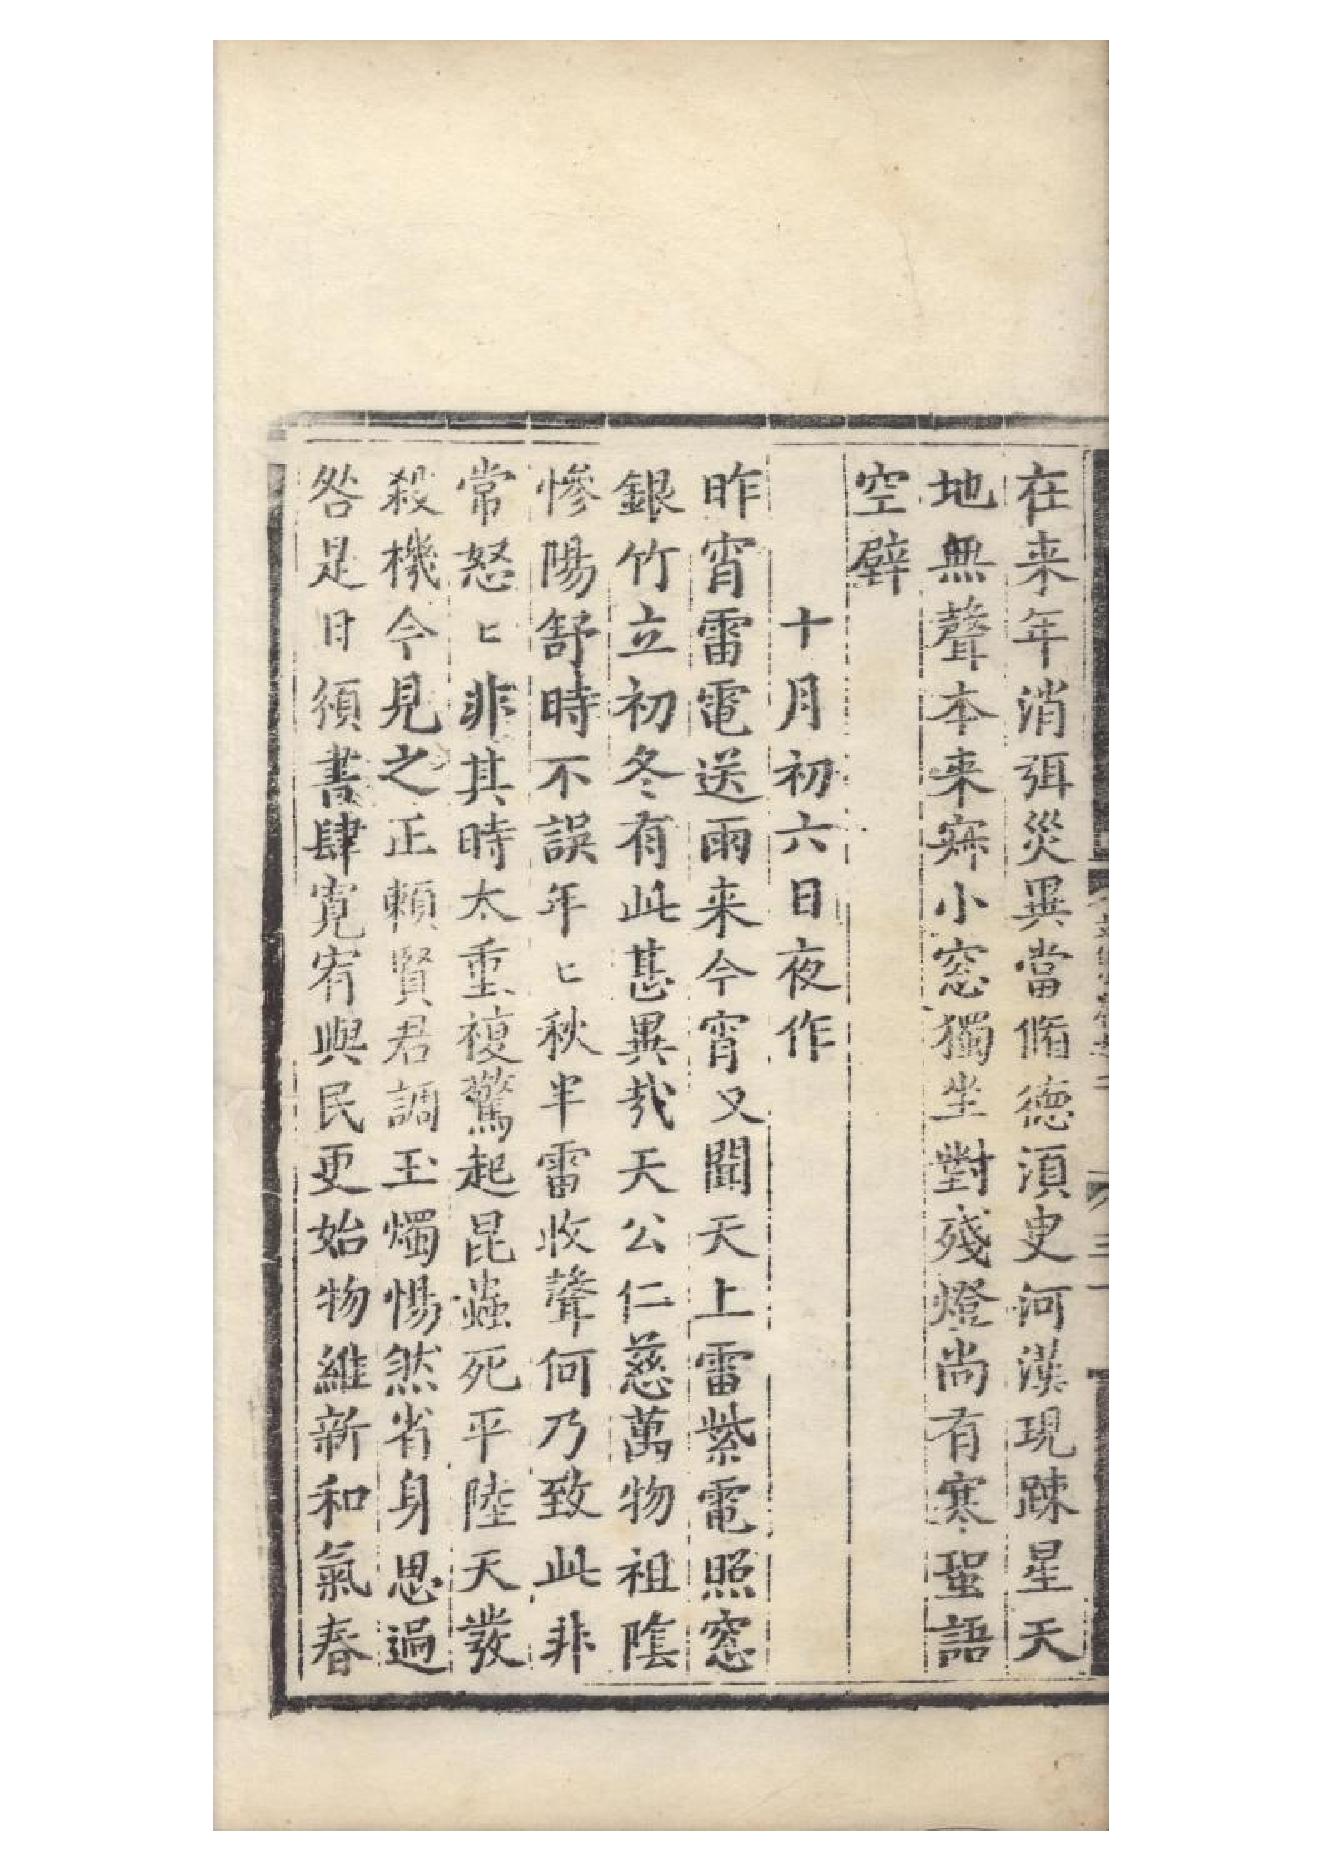 在来年消弭災異當脩德湏臾河漢現踈星天
地無聲本来寂小窓獨坐對殘燈尚有寒蛩語
空壁
十月初六日夜作
昨宵雷電送雨来今宵又聞天上雷紫電照窓
銀竹立初冬有此甚異哉天公仁慈萬物祖陰
慘陽舒時不誤年〻秋半雷收聲何乃致此非
常怒〻非其時太重複驚起昆蟲死平陸天發
殺機今見之正賴賢君調玉燭惕然省身思過
咎是日須書肆寬宥與民更始物維新和氣春